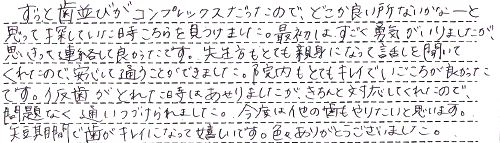 ずっと歯並びがコンプレックスだったので、どこか良い所ないかなーと
思って探していた時こちらを見つけました。最初はすごく勇気がいりましたが、
思いきって連絡して良かったです。先生方もとても親身になって話しを聞いて
くれたので安心して通うことができました。院内もとてもキレイでいごこちが良かった
です。仮歯がとれた時はあせりましたが、きちんと対応してくれたので、
問題なく通いつづけられました。今度は他の歯もやりたいと思います。
短期間で歯がキレイになって嬉しいです。色々ありがとうございました。